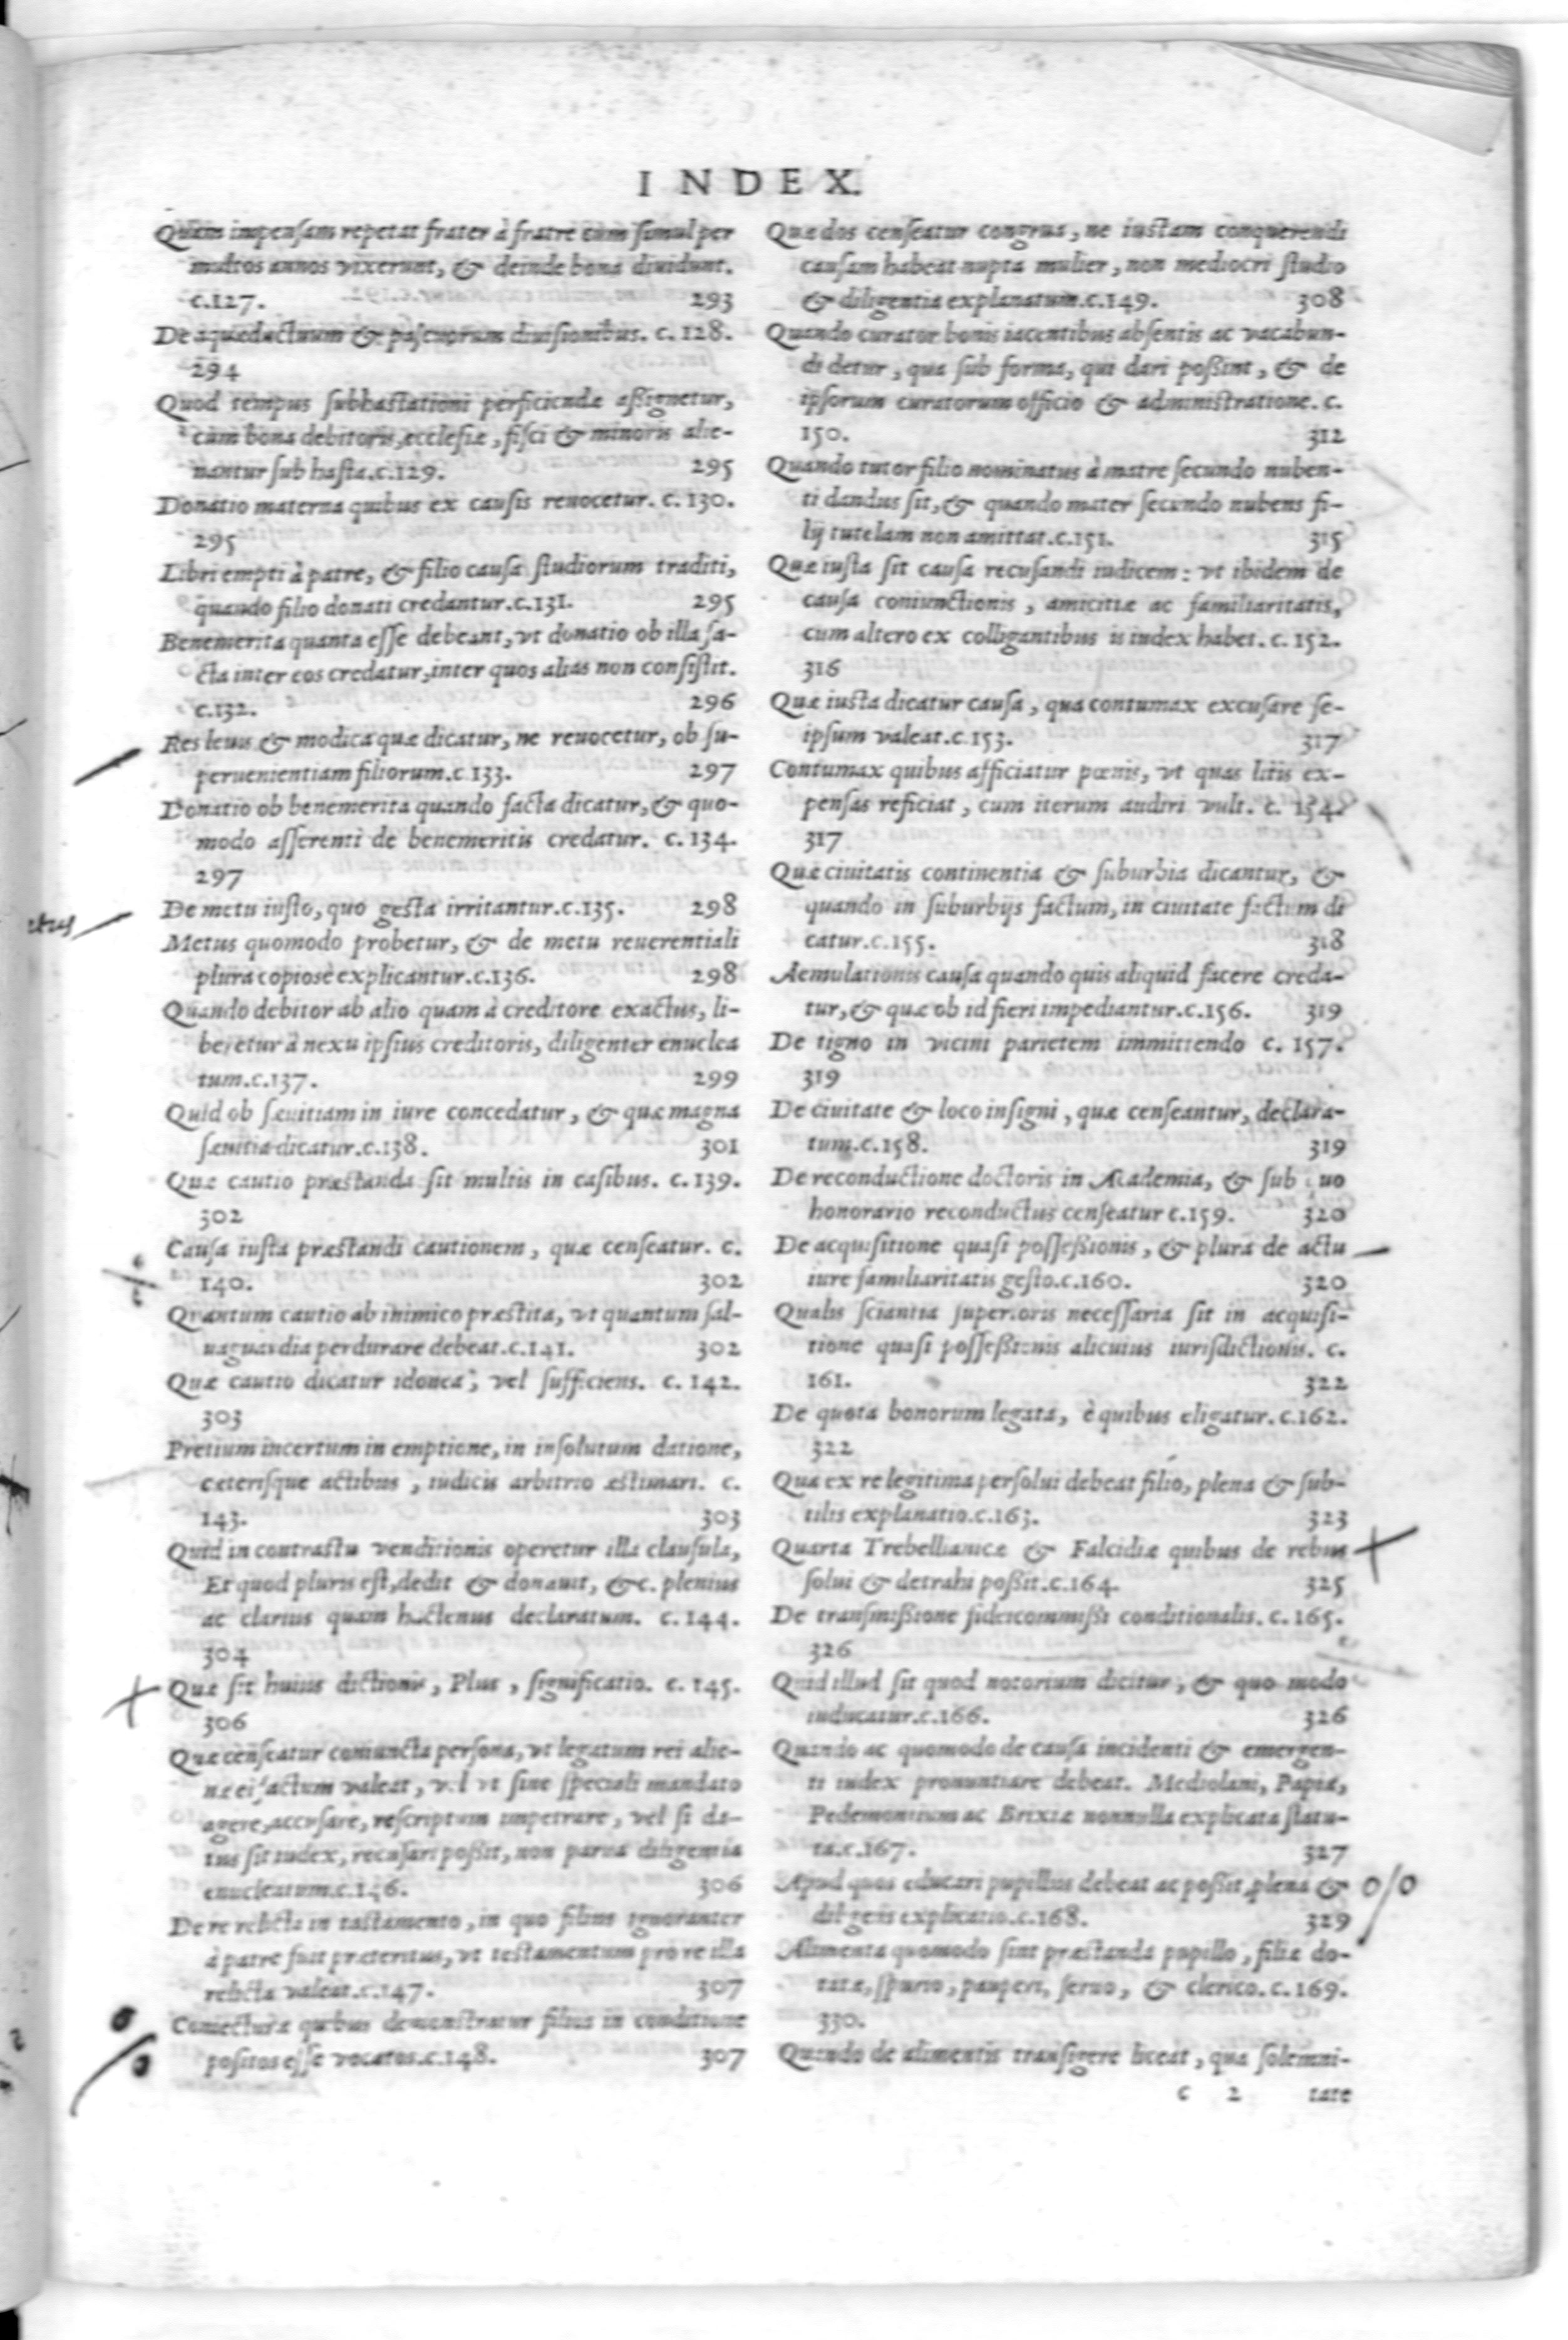 INDEX.
Quam impensam repetat frater à fratre cum simul per
multos annos vixerunt, & deinde bona diuidunt.
c.127. 293
De aquæductuum & pascuorum diuisionibus. c.128.
294
Quod tempus subhastationi perficiendæ aßignetur,
cum bona debitoris, ecclesiæ, fisci & minoris alie-
nantur sub hasta.c.129. 295
Donatio materna quibus ex causis reuocetur. c.130.
295
Libri empti à patre, & filio causa studiorum traditi,
quando filio donati credantur.c.131. 295
Benemerita quanta esse debeant, vt donatio ob illa fa-
cta inter eos credatur, inter quos alias non consistit.
c.132. 296
Res leuis & modica quæ dicatur, ne reuocetur, ob su-
peruenientiam filiorum.c.133. 297
Donatio ob benemerita quando facta dicatur, & quo-
modo asserenti de benemeritis credatur. c.134.
297
De metu iusto, quo gesta irritantur.c.135. 298
Metus quomodo probetur, & de metu reuerentiali
plura copiosè explicantur.c.136. 298
Quando debitor ab alio quam à creditore exactus, li-
beretur à nexu ipsius creditoris, diligenter enuclea
tum.c.137. 299
Quid ob sæuitiam in iure concedatur, & quæ magna
sæuitia dicatur.c.138. 301
Quæ cautio præstanda sit multis in casibus. c.139.
302
Causa iusta præstandi cautionem, quæ censeatur. c.
140. 302
Quantum cautio ab inimico præstita, vt quantum sal-
uaguardia perdurare debeat.c.141. 302
Quæ cautio dicatur idonea, vel sufficiens. c.142.
303
Pretium incertum in emptione, in insolutum datione,
cæterisque actibus, iudicis arbitrio æstimari. c.
143. 303
Quid in contractu venditionis operetur illa clausula,
Et quod pluris est, dedit & donauit, &c. plenius
ac clarius quam hactenus declaratum. c.144.
304
Quæ sit huius dictionis, Plus, significatio. c.145.
306
Quæ censeatur coniuncta persona, vt legatum rei alie-
næ ei factum valeat, vel vt sine speciali mandato
agere, accusare, rescriptum impetrare, vel si da-
tus sit iudex, recusari poßit, non parua diligentia
enucleatum.c.146. 306
De re relicta in testamento, in quo filius ignoranter
à patre fuit præteritus, vt testamentum pro re illa
relicta valeat.c.147. 307
Coniecturæ quibus demonstratur filios in conditione
positos esse vocatos.c.148. 307
Quæ dos censeatur congrua, ne iustam conquerendi
causam habeat nupta mulier, non mediocri studio
& diligentia explanatum.c.149. 308
Quando curator bonis iacentibus absentis ac vacabun-
di detur, qua sub forma, qui dari poßint, & de
ipsorum curatorum officio & administratione. c.
150. 312
Quando tutor filio nominatus à matre secundo nuben-
ti dandus sit, & quando mater secundo nubens fi-
lij tutelam non amittat.c.151. 315
Quæ iusta sit causa recusandi iudicem: vt ibidem de
causa coniunctionis, amicitiæ ac familiaritatis,
cum altero ex colligantibus is iudex habet. c.152.
316
Quæ iusta dicatur causa, qua contumax excusare se-
ipsum valeat.c.153. 317
Contumax quibus afficiatur pœnis, vt quas litis ex-
pensas reficiat, cum iterum audiri vult. c. 154.
317
Quæ ciuitatis continentia & suburbia dicantur, &
quando in suburbijs factum, in ciuitate factum di
catur.c.155. 318
Aemulationis causa quando quis aliquid facere creda-
tur, & quæ ob id fieri impediantur.c.156. 319
De tigno in vicini parietem immittendo c. 157.
319
De ciuitate & loco insigni, quæ censeantur, declara-
tum.c.158. 319
De reconductione doctoris in Academia, & sub uo
honorario reconductus censeatur c.159. 320
De acquisitione quasi posseßionis, & plura de actu
iure familiaritatis gesto.c.160. 320
Qualis scientia superioris necessaria sit in acquisi-
tione quasi posseßionis alicuius iurisdictionis. c.
161. 322
De quota bonorum legata, è quibus eligatur.c.162.
322
Qua ex re legitima persolui debeat filio, plena & sub-
tilis explanatio.c.163. 323
Quarta Trebellianicæ & Falcidiæ quibus de rebus
solui & detrahi poßit.c.164. 325
De transmißione fideicommißi conditionalis. c.165.
326
Quid illud sit quod notorium dicitur, & quo modo
inducatur.c.166. 326
Quando ac quomodo de causa incidenti & emergen-
ti iudex pronuntiare debeat. Mediolani, Papiæ,
Pedemontium ac Brixiæ nonnulla explicata statu-
ta.c.167. 327
Apud quos educari pupillus debeat ac poßit, plena &
diligens explicatio.c.168. 329
Alimenta quomodo sint præstanda pupillo, filiæ do-
tatæ, spurio, pauperi, seruo, & clerico. c.169.
330.
Quando de alimentis transigere liceat, qua solemni-
c 2 tate